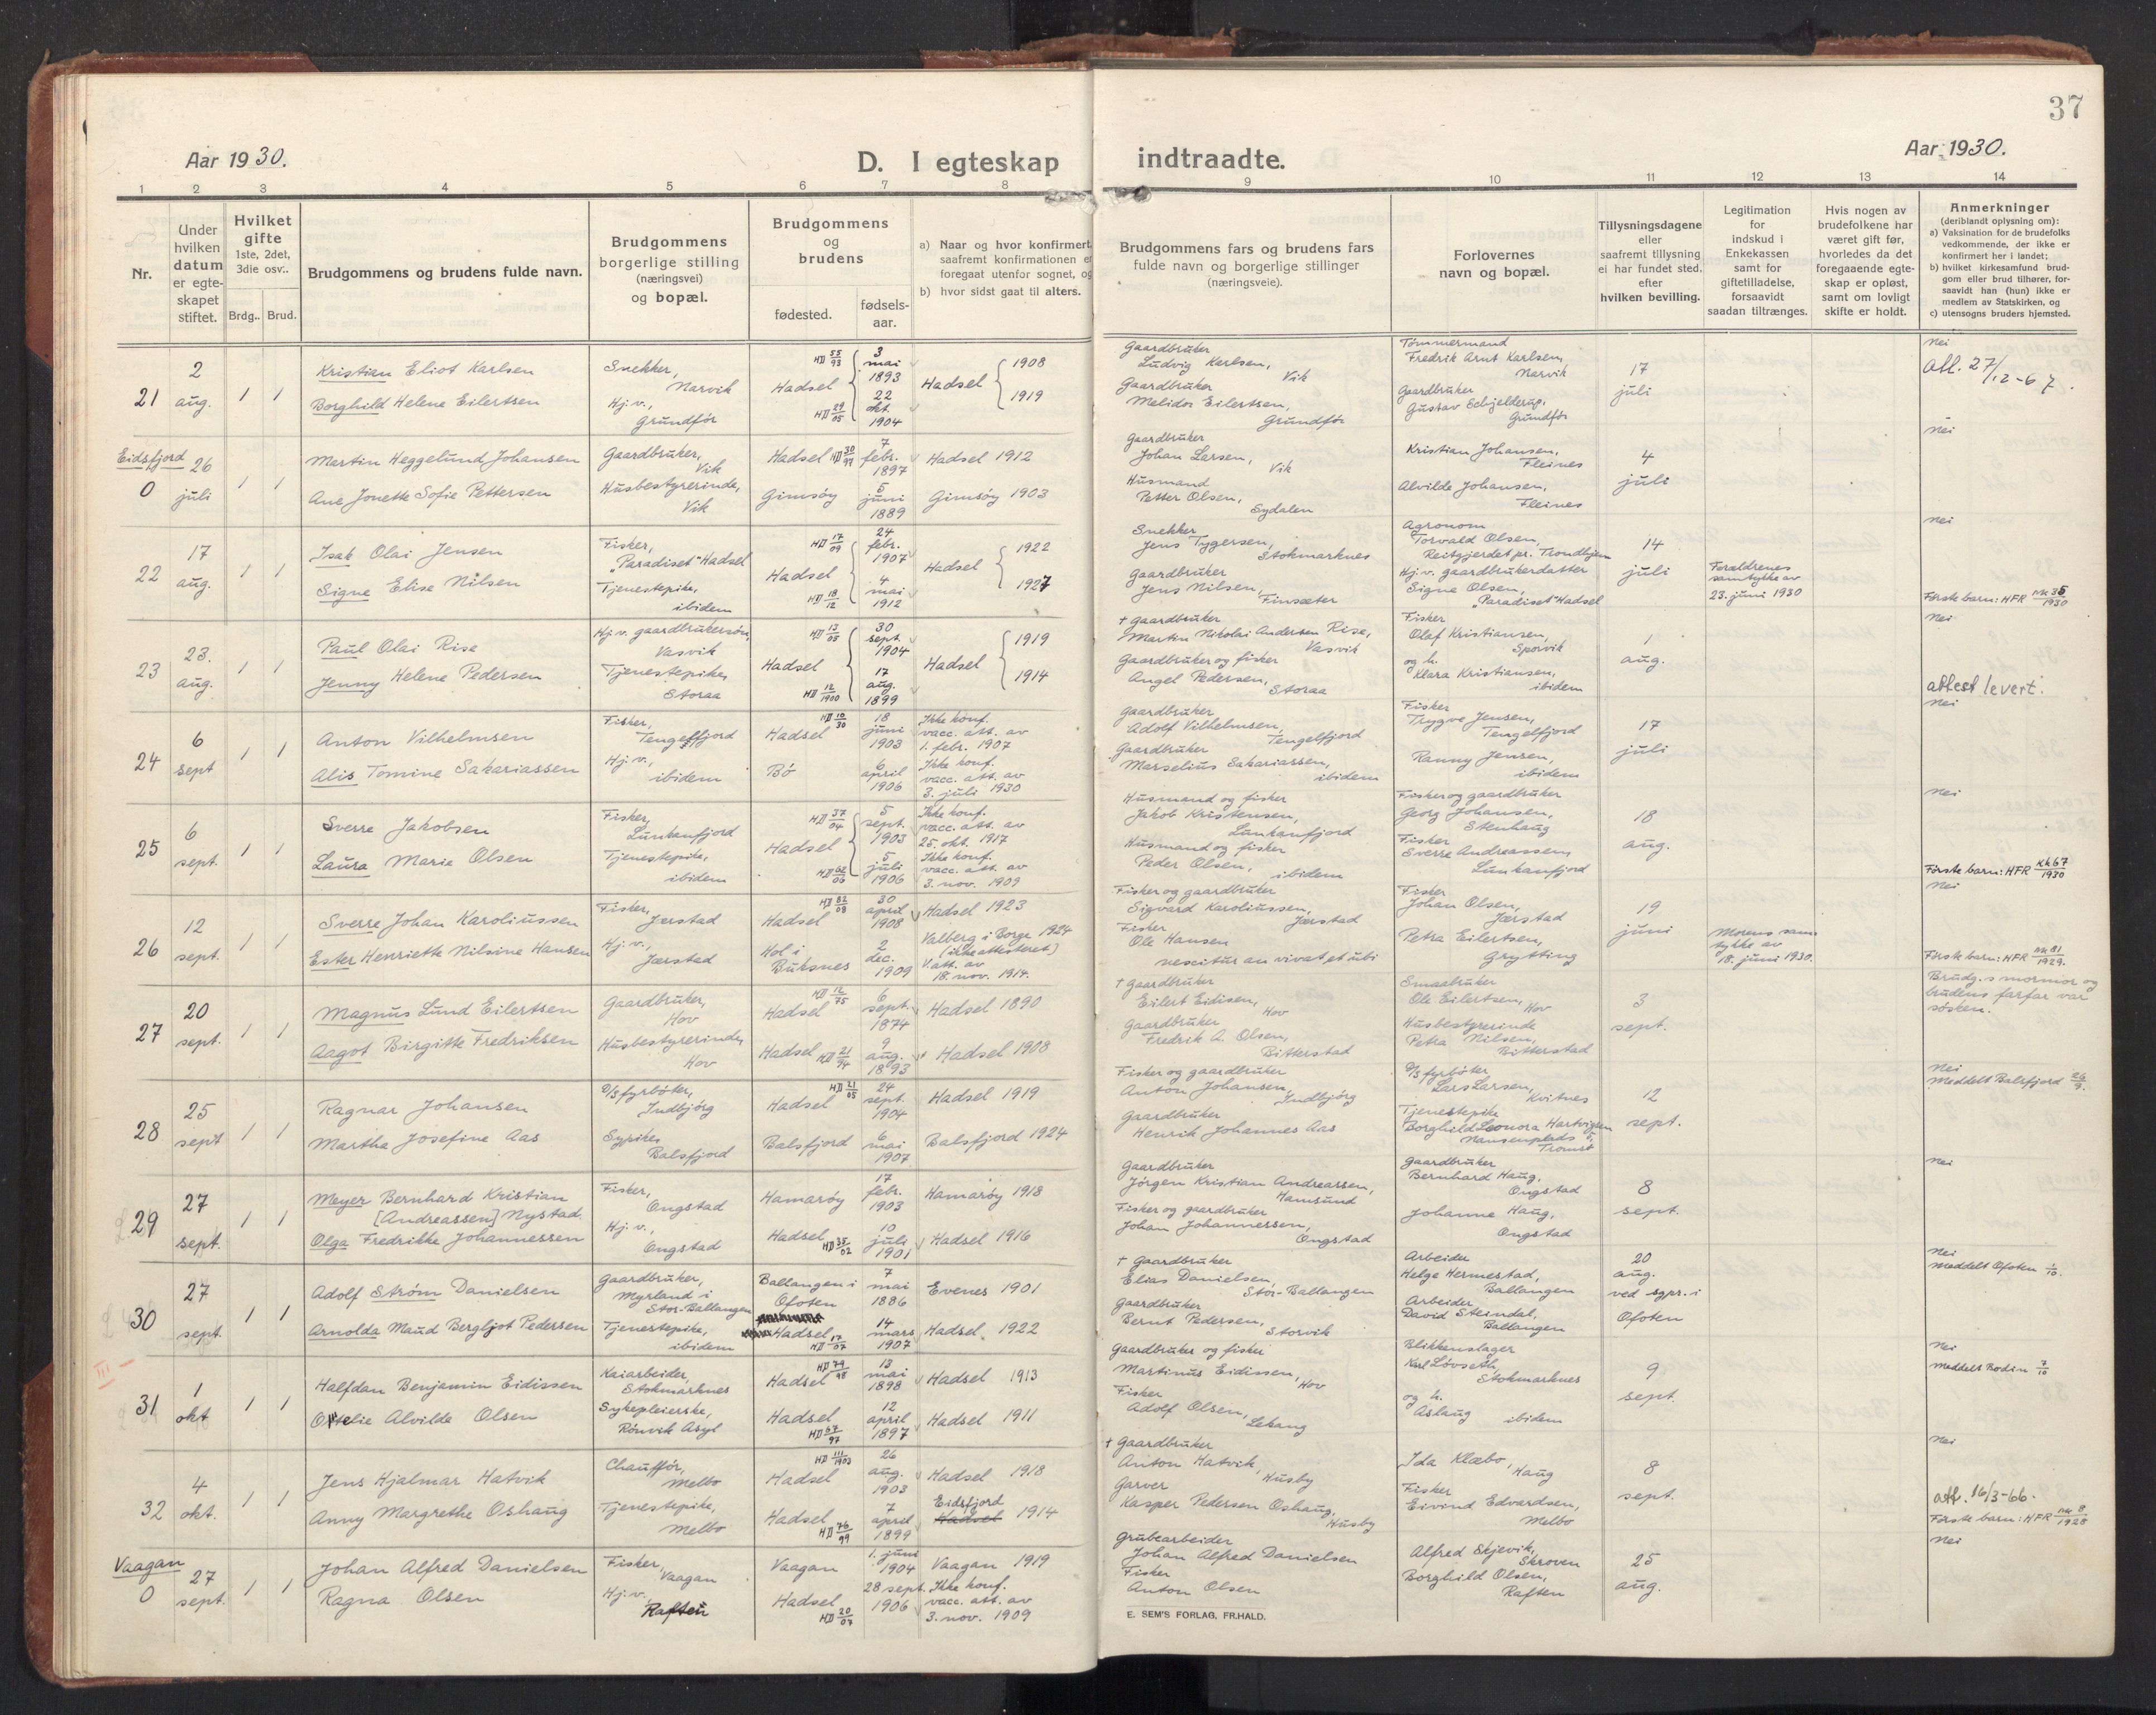 37
Aar 1930.
D. I egteskap indtraadte.
Aar 1930.
1 2 3 4 5 6 7 8 9 10 11 12 13 14
Nr.
Under hvilken datum er egteskapet stiftet.
Hvilket gifte
1ste, 2det, 3die osv..
Brdg.. Brud.
Brudgommens og brudens fulde navn.
Brudgommens borgerlige stilling (næringsvei) og bopæl.
Brudgommens og brudens
fødested.
fødsels-aar.
a) Naar og hvor konfirmert, saafremt konfirmationen er foregaat utenfor sognet, og
b) hvor sidst gaat til alters.
Brudgommens fars og brudens fars fulde navn og borgerlige stillinger (næringsveie).
Forlovernes navn og bopæl.
Tillysningsdagene eller saafremt tillysning ei har fundet sted. efter hvilken bevilling.
Legitimation for indskud i Enkekassen samt for giftetilladelse, forsaavidt saadan tiltrænges.
Hvis nogen av brudefolkene har været gift før, hvorledes da det foregaaende egteskap er opløst, samt om lovligt skifte er holdt.
Anmerkninger
(deriblandt oplysning om):
a) Vaksination for de brudefolks vedkommende, der ikke er konfirmert her i landet;
b) hvilket kirkesamfund brudgom eller brud tilhører, forsaavidt han (hun) ikke er medlem av Statskirken, og
c) utensogns bruders hjemsted.
21
2 aug.
1 1
Kristian Eliot Karlsen
Borghild Helene Eilertsen
Snekker, Narvik
Hj.v., Grundför
HD 55/93
Hadsel
HD 29/05
3 mai 1893
22 okt. 1904
Hadsel { 1908
1919
Gaardbruker
Ludvig Karlsen, Vik
Gaardbruker
Melidor Eilertsen, Grundför
Tømmermand
Fredrik Arnt Karlsen, Narvik
Gaardbruker
Gustav Schjelderup, Grundför
17 juli
Nei
Att. 27/12-67.
Eidsfjord
0
26 juli
1 1
Martin Heggelund Johansen
Ane Jonette Sofie Pettersen
Gaardbruker, Vik
Husbestyrerinde, Vik
Hadsel HD 30/97
Gimsøy
7 febr. 1897
5 juni 1889
Hadsel 1912
Gimsøy 1903
Gaardbruker
Johan Larsen, Vik
Husmand
Petter Olsen, Sydalen
Kristian Johansen, Fleines
Alvilde Johansen, Fleines
4 juli
Nei
22
17 aug.
1 1
Isak Olai Jensen
Signe Elise Nilsen
Fisker, "Paradiset" Hadsel
Tjenestepike, ibidem
HD 17/09
Hadsel
HD 18/12
24 febr. 1907
4 mai 1912
Hadsel { 1922
1927
Snekker
Jens Tygersen, Stokmarknes
Gaardbruker
Jens Nilsen, Finsæter
Agronom
Torvald Olsen, Reitgjerdet pr. Trondhjem
Hj.v. gaardbrukerdatter
Signe Olsen, "Paradiset" Hadsel
14 juli
Forældrenes samtykke av 23. juni 1930
Nei
Förste barn: HFR mk 35/1930
23
23. aug.
1 1
Paul Olai Rise
Jenny Helene Pedersen
Hj.v. gaardbrukersøn, Vasvik
Tjenestepike, Storaa
HD 13/05
Hadsel
HD 12/1900
30 sept. 1904
17 aug. 1899
Hadsel { 1919
1914
+ gaardbruker
Martin Nikolai Andersen Rise, Vasvik
Gaardbruker og fisker
Angel Pedersen, Storaa
Fisker
Olaf Kristiansen, Sporvik
og h.
Klara Kristiansen, ibidem
1 aug.
Nei
attest levert.
24
6 sept
1 1
Anton Vilhelmsen
Alis Tomine Sakariassen
Fisker, Tengelfjord
Hj.v., ibidem
HD 10/30
Hadsel
Bø
18 juni 1903
6 april 1906
Ikke konf. vacc. att. av 1. febr. 1907
Ikke konf. vacc. att. av 3. juli 1930
Gaardbruker
Adolf Vilhelmsen, Tengelfjord
Gaardbruker
Marselius Sakariassen, ibidem
Fisker
Trygve Jensen, Tengelfjord
Ranny Jensen, ibidem
17 juli
Nei
25
6 sept.
1 1
Sverre Jakobsen
Laura Marie Olsen
Fisker, Lunkanfjord
Tjenestepike, ibidem
HD 37/04
Hadsel
HD 62/06
5 sept. 1903
5 juli 1906
Ikke konf. vacc. att. av 25. okt. 1917
Ikke konf. vacc. att. av 3. nov. 1909
Husmand og fisker
Jakob Kristensen, Lunkanfjord
Husmand og fisker
Peder Olsen, ibidem
Fisker og gaardbruker
Georg Johansen, Stenhaug
Fisker
Sverre Andreassen, Lunkanfjord
18 aug.
Nei
Förste barn: HFR kk 67/1930
26
12 sept.
1 1
Sverre Johan Karoliussen
Ester Henriette Nilsine Hansen
Fisker, Jørstad
Hj.v., Jørstad
HD 82/08
Hadsel
Hol i Buksnes
30 april 1908
2 dec. 1909
Hadsel 1923
Valberg i Borge 1924 (ikke attesteret) V. att. av 18. nov. 1914.
Fisker og gaardbruker
Sigvard Karoliussen, Jørstad
Fisker
Ole Hansen
nescitur an vivat et ubi
Fisker
Johan Olsen, Jørstad
Petra Eilertsen, Grytting
19 juni
Morens samtykke av 18. juni 1930.
Nei
Förste barn: HFR mk 81/1929.
27
20 sept.
1 1
Magnus Lund Eilertsen
Aagot Birgitte Fredriksen
Gaardbruker, Hov
Husbestyrerinde, Hov
HD 12/75
Hadsel
Hadsel HD 21/94
6 sept. 1874
9 aug. 1893
Hadsel 1890
Hadsel 1908
+ gaardbruker
Eilert Eidisen, Hov
Gaardbruker
Fredrik A. Olsen, Bitterstad
Smaabruker
Ole Eilertsen, Hov
Husbestyrerinde
Petra Nilsen, Bitterstad
3 sept.
Brudg.s mormor og brudens farfar var søsken.
28
25 sept
1 1
Ragnar Johansen
Martha Josefine Aas
D/S fyrbøter, Indbjörg
Sypike, Balsfjord
HD 21/05
Hadsel
Balsfjord
24 sept. 1904
6 mai 1907
Hadsel 1919
Balsfjord 1924
Fisker og gaardbruker
Anton Johansen, Indbjörg
Gaardbruker
Henrik Johannes Aas
D/S fyrbøter
Lars Larsen, Kvitnes
Tjenestepike
Borghild Leonora Hartvigsen
Nansenplads 5, Tromsö
12 sept.
Nei
Meddelt Balsfjord 26/9.
29
27 sept.
1 1
Meyer Bernhard Kristian [Andreassen] Nystad
Olga Fredrikke Johannessen
Fisker, Ongstad
Hj.v., Ongstad
Hamarøy
Hadsel HD 35/02
17 febr. 1903
10 juli 1901
Hamarøy 1918
Hadsel 1916
Gaardbruker
Jörgen Kristian Andreassen, Hamsund
Fisker og gaardbruker
Johan Johannessen, Ongstad
Gaardbruker
Bernhard Haug, Ongstad
Johanne Haug, Ongstad
8 sept.
Nei
30
27 sept.
1 1
Adolf Strøm Danielsen
Arnolda Maud Bergljot Pedersen
Gaardbruker, Myrland i Stor-Ballangen
Tjenestepike, ibidem
Ballangen i Ofoten
Hadsel HD 17/07
7 mai 1886
14 mars 1907
Evenes 1901
Hadsel 1922
+ gaardbruker
Elias Danielsen, Stor-Ballangen
Gaardbruker
Bernt Pedersen, Storvik
Arbeider
Helge Hermestad, Ballangen
Arbeider
David Steindal, Ballangen
20 aug. ved sgpr. i Ofoten
Nei
Meddelt Ofoten 1/10.
III -
31
1 okt
1 1
Halfdan Benjamin Eidissen
Otelie Alvilde Olsen
Kaiarbeider, Stokmarknes
Sykepleierske, Rönvik Asyl
HD 79/98
Hadsel
Hadsel HD 67/97
13 mai 1898
12 april 1897
Hadsel 1913
Hadsel 1911
Gaardbruker og fisker
Martinus Eidissen, Hov
Fisker
Adolf Olsen, Lekang
Blikkenslager
Karl Løvseth, Stokmarknes
og h.
Aslaug ibidem
9 sept.
Nei
Meddelt Bodin 7/10
32
4 okt.
1 1
Jens Hjalmar Hatvik
Anny Margrethe Oshaug
Chauffør, Melbo
Tjenestepike, Melbo
HD 111/1903
Hadsel
Hadsel HD 76/99
26 aug. 1903
7 april 1899
Hadsel 1918
Eidsfjord Hadsel 1914
+ Gaardbruker
Anton Hatvik, Husby
Garver
Kasper Pedersen Oshaug, Husby
Ida Klæbo, Haug
Fisker
Eivind Edvardsen, Melbo
8 sept.
Nei
att. 16/3-66.
Förste barn: HFR mk 8/1928
Vaagan
0
27 sept.
1 1
Johan Alfred Danielsen
Ragna Olsen
Fisker, Vaagan
Hj.v., Raften
Vaagan
Hadsel HD 20/07
1. juni 1904
28 sept. 1906
Vaagan 1919
Ikke konf. vacc. att. av 3. nov. 1909
Grubearbeider
Johan Alfred Danielsen
Fisker
Anton Olsen
Alfred Skjevik, Skroven
Borghild Olsen, Raften
25 aug.
Nei
E. SEM'S FORLAG, FR.HALD.